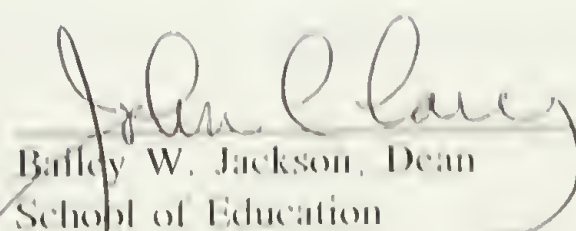 John C Carey
Bailey W. Jackson, Dean
School of Education